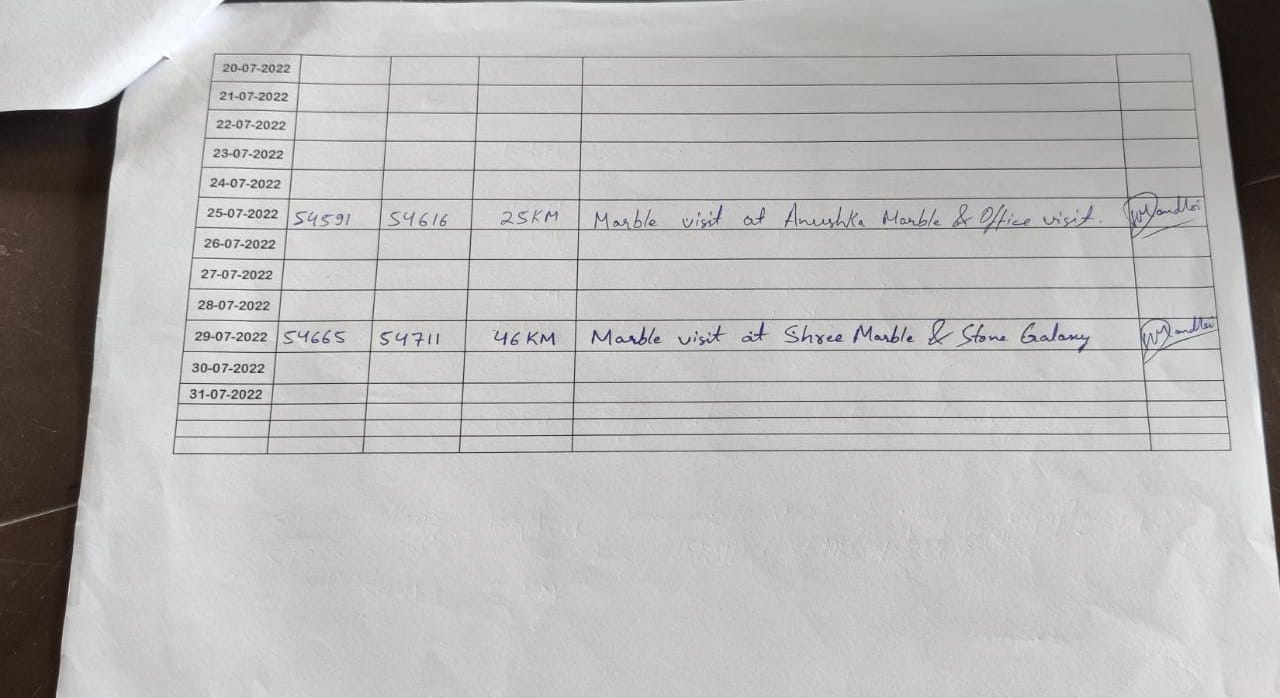 20-07-2022
21-07-2022
22-07-2022
23-07-2022
24-07-2022
25-07-2022 54591 54616 25KM Marble visit at Anushka Marble & Office visit.
26-07-2022
27-07-2022
28-07-2022
29-07-2022 54665 54711 46KM Marble visit at Shree Marble & Stone Galaxy
30-07-2022
31-07-2022